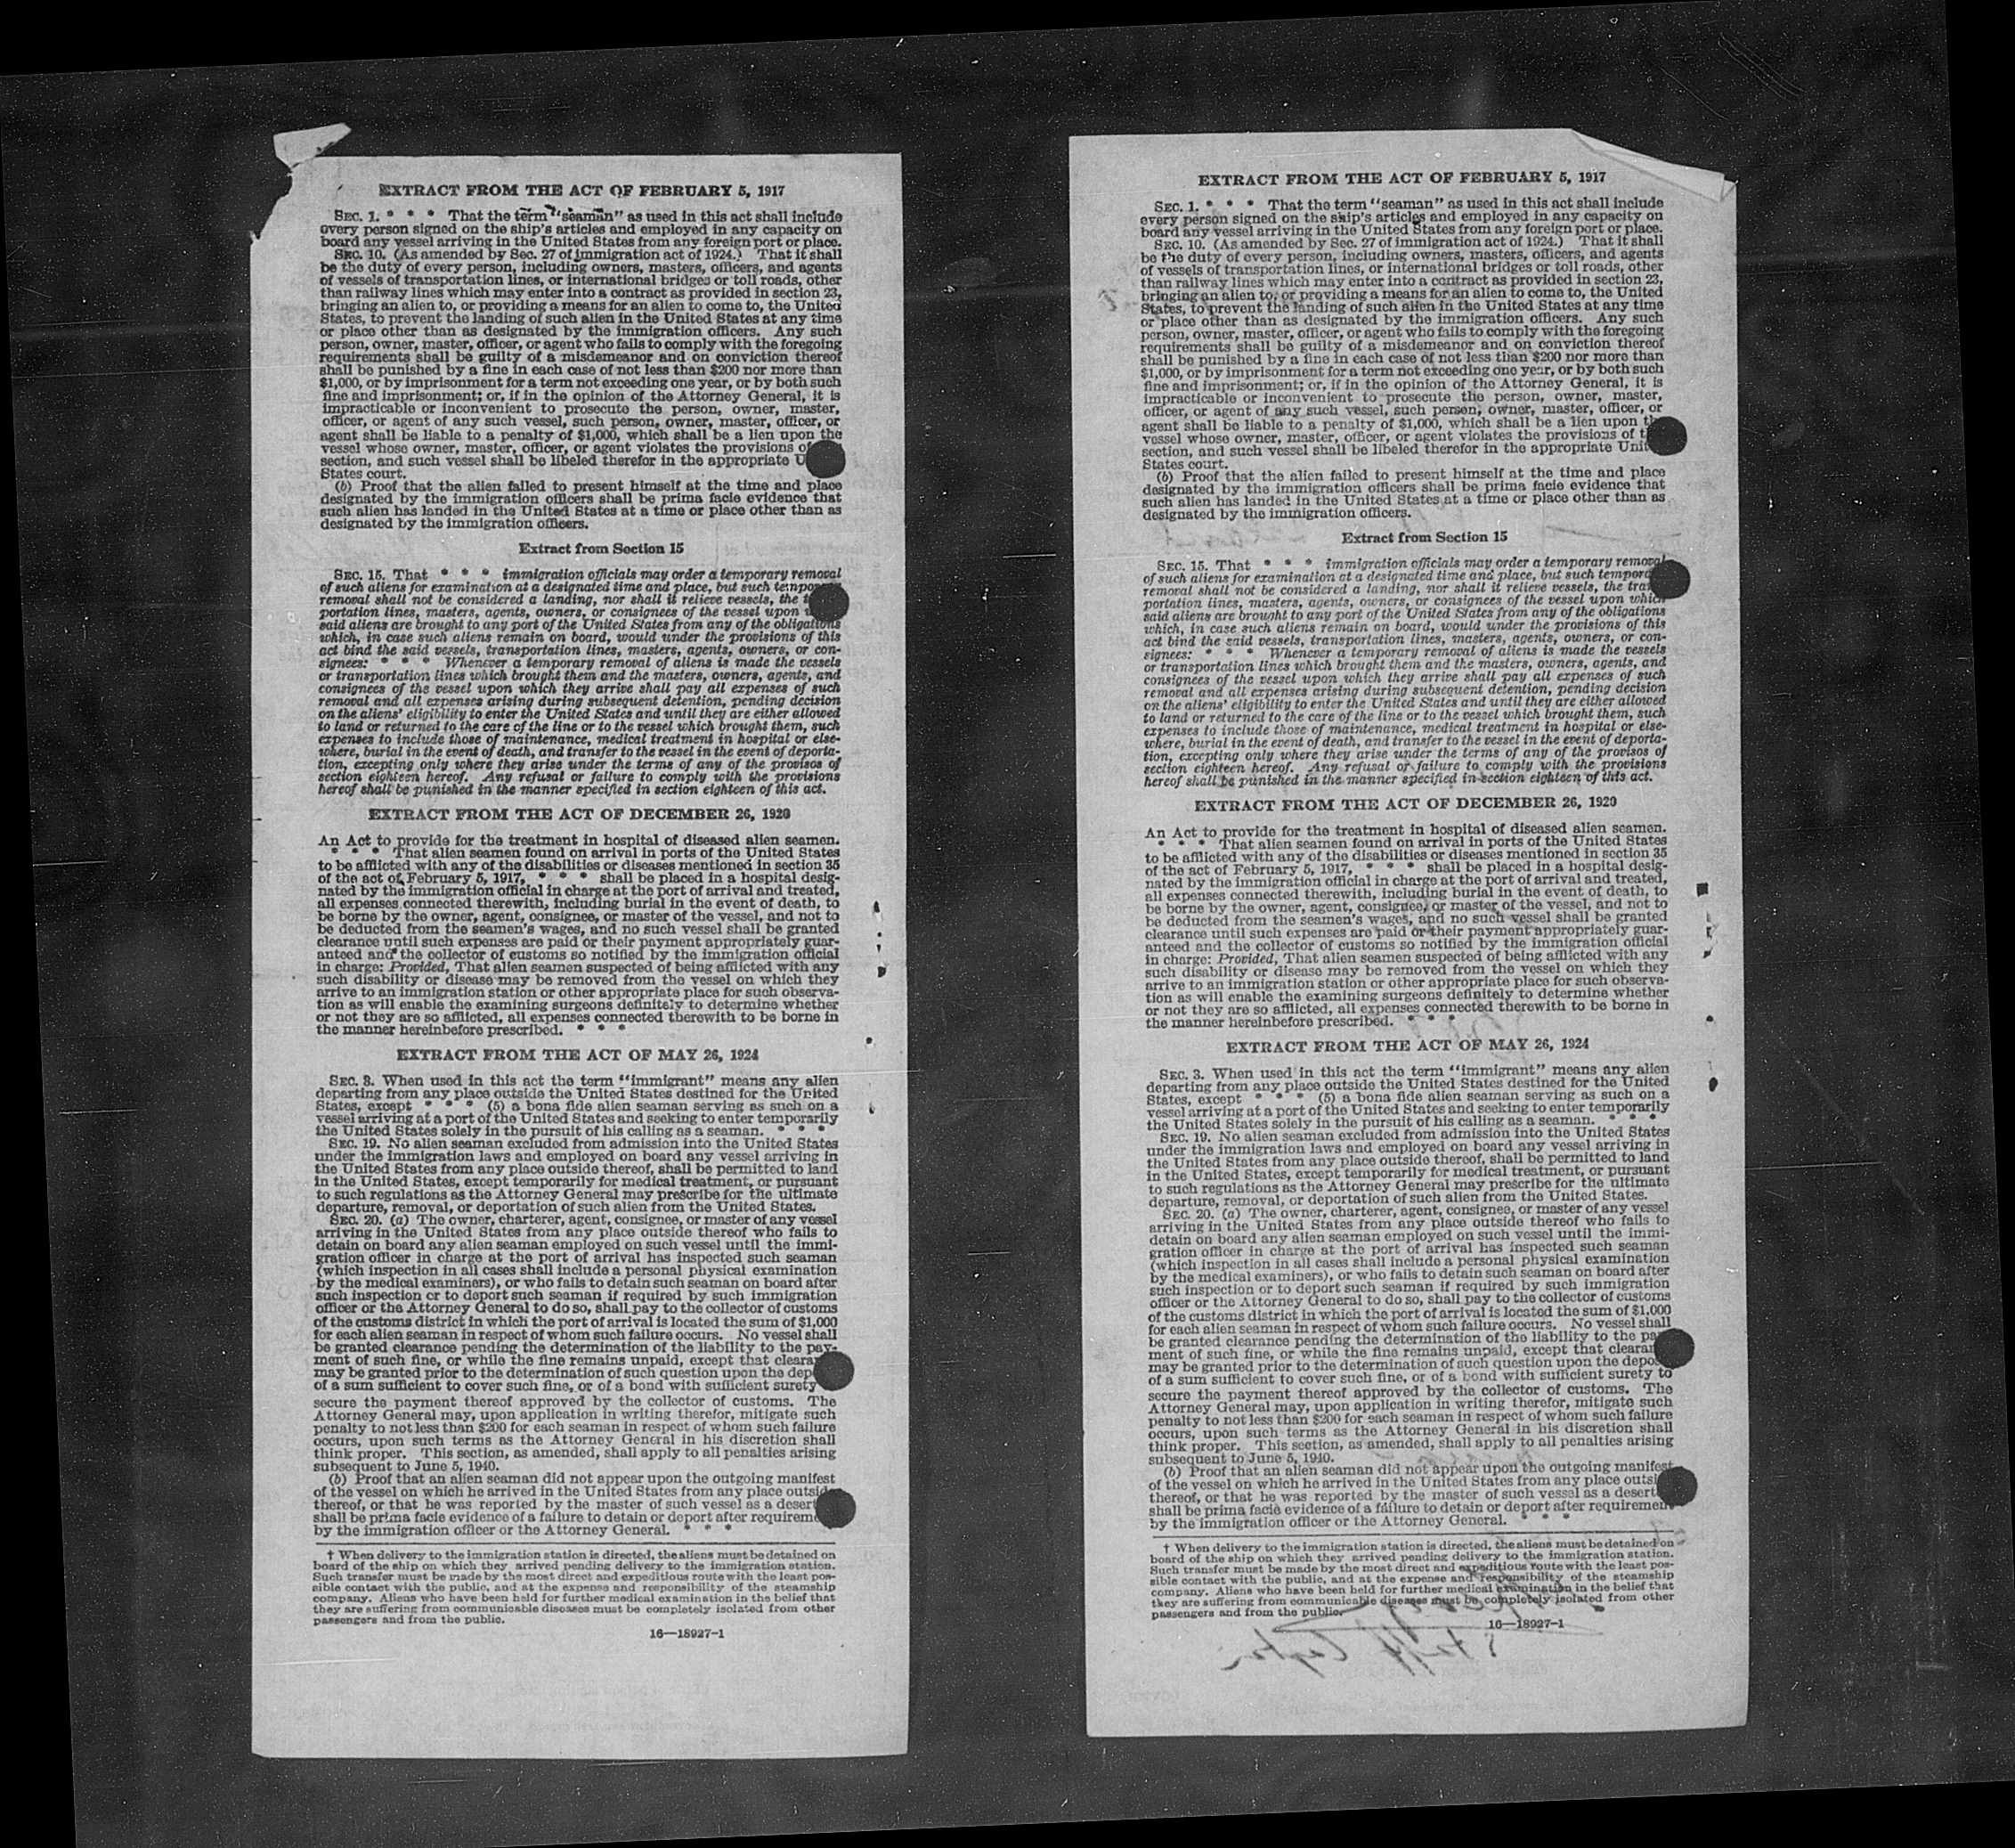 EXTRACT FROM THE ACT OF FEBRUARY 5, 1917
SEC. 1. * * * That the term "seaman" as used in this act shall include
every person signed on the ship's articles and employed in any capacity on
board any vessel arriving in the United States from any foreign port or place.
SEC. 10. (As amended by Sec. 27 of immigration act of 1924.) That it shall
be the duty of every person, including owners, masters, officers, and agents
of vessels of transportation lines, or international bridges or toll roads, other
than railway lines which may enter into a contract as provided in section 23,
bringing an alien to, or providing a means for an alien to come to, the United
States, to prevent the landing of such alien in the United States at any time
or place other than as designated by the immigration officers. Any such
person, owner, master, officer, or agent who fails to comply with the foregoing
requirements shall be guilty of a misdemeanor and on conviction thereof
shall be punished by a fine in each case of not less than $200 nor more than
$1,000, or by imprisonment for a term not exceeding one year, or by both such
fine and imprisonment; or, if in the opinion of the Attorney General, it is
impracticable or inconvenient to prosecute the person, owner, master,
officer, or agent of any such vessel, such person, owner, master, officer, or
agent shall be liable to a penalty of $1,000, which shall be a lien upon the
vessel whose owner, master, officer, or agent violates the provisions
section, and such vessel shall be libeled therefor in the appropriate
States court.
(b) Proof that the alien failed to present himself at the time and place
designated by the immigration officers shall be prima facie evidence that
such alien has landed in the United States at a time or place other than as
designated by the immigration officers.
Extract from Section 15
SEC. 15. That * * * immigration officials may order a temporary removal
of such aliens for examination at a designated time and place, but such
removal shall not be considered a landing, nor shall it relieve vessels, the
portation lines, masters, agents, owners, or consignees of the vessel upon
said aliens are brought to any port of the United States from any of the obligations
which, in case such aliens remain on board, would under the provisions of this
act bind the said vessels, transportation lines, masters, agents, owners, or con-
signees: * * * Whenever a temporary removal of aliens is made the vessels
or transportation lines which brought them and the masters, owners, agents, and
consignees of the vessel upon which they arrive shall pay all expenses of such
removal and all expenses arising during subsequent detention, pending decision
on the aliens' eligibility to enter the United States and until they are either allowed
to land or returned to the care of the line or to the vessel which brought them, such
expenses to include those of maintenance, medical treatment in hospital or else-
where, burial in the event of death, and transfer to the vessel in the event of deporta-
tion, excepting only where they arise under the terms of any of the provisos of
section eighteen hereof. Any refusal or failure to comply with the provisions
hereof shall be punished in the manner specified in section eighteen of this act.
EXTRACT FROM THE ACT OF DECEMBER 26, 1920
An Act to provide for the treatment in hospital of diseased alien seamen.
* * * That alien seamen found on arrival in ports of the United States
to be afflicted with any of the disabilities or diseases mentioned in section 35
of the act of February 5, 1917, * * * shall be placed in a hospital desig-
nated by the immigration official in charge at the port of arrival and treated,
all expenses connected therewith, including burial in the event of death, to
be borne by the owner, agent, consignee, or master of the vessel, and not to
be deducted from the seamen's wages, and no such vessel shall be granted
clearance until such expenses are paid or their payment appropriately guar-
anteed and the collector of customs so notified by the immigration official
in charge: Provided, That alien seamen suspected of being afflicted with any
such disability or disease may be removed from the vessel on which they
arrive to an immigration station or other appropriate place for such observa-
tion as will enable the examining surgeons definitely to determine whether
or not they are so afflicted, all expenses connected therewith to be borne in
the manner hereinbefore prescribed. * * *
EXTRACT FROM THE ACT OF MAY 26, 1924
SEC. 3. When used in this act the term "immigrant" means any alien
departing from any place outside the United States destined for the United
States, except * * * (5) a bona fide alien seaman serving as such on a
vessel arriving at a port of the United States and seeking to enter temporarily
the United States solely in the pursuit of his calling as a seaman. * * *
SEC. 19. No alien seaman excluded from admission into the United States
under the immigration laws and employed on board any vessel arriving in
the United States from any place outside thereof, shall be permitted to land
in the United States, except temporarily for medical treatment, or pursuant
to such regulations as the Attorney General may prescribe for the ultimate
departure, removal, or deportation of such alien from the United States.
SEC. 20. (a) The owner, charterer, agent, consignee, or master of any vessel
arriving in the United States from any place outside thereof who fails to
detain on board any alien seaman employed on such vessel until the immi-
gration officer in charge at the port of arrival has inspected such seaman
(which inspection in all cases shall include a personal physical examination
by the medical examiners), or who fails to detain such seaman on board after
such inspection or to deport such seaman if required by such immigration
officer or the Attorney General to do so, shall pay to the collector of customs
of the customs district in which the port of arrival is located the sum of $1,000
for each alien seaman in respect of whom such failure occurs. No vessel shall
be granted clearance pending the determination of the liability to the pay-
ment of such fine, or while the fine remains unpaid, except that
may be granted prior to the determination of such question upon the
of a sum sufficient to cover such fine, or of a bond with sufficient surety
secure the payment thereof approved by the collector of customs. The
Attorney General may, upon application in writing therefor, mitigate such
penalty to not less than $200 for each seaman in respect of whom such failure
occurs, upon such terms as the Attorney General in his discretion shall
think proper. This section, as amended, shall apply to all penalties arising
subsequent to June 5, 1940.
(b) Proof that an alien seaman did not appear upon the outgoing manifest
of the vessel on which he arrived in the United States from any place outside
thereof, or that he was reported by the master of such vessel as a
shall be prima facie evidence of a failure to detain or deport after
by the immigration officer or the Attorney General. * * *
† When delivery to the immigration station is directed, the aliens must be detained on
board of the ship on which they arrived pending delivery to the immigration station.
Such transfer must be made by the most direct and expeditious route with the least pos-
sible contact with the public, and at the expense and responsibility of the steamship
company. Aliens who have been held for further medical examination in the belief that
they are suffering from communicable diseases must be completely isolated from other
passengers and from the public.
16—18927-1
EXTRACT FROM THE ACT OF FEBRUARY 5, 1917
SEC. 1. * * * That the term "seaman" as used in this act shall include
every person signed on the ship's articles and employed in any capacity on
board any vessel arriving in the United States from any foreign port or place.
SEC. 10. (As amended by Sec. 27 of immigration act of 1924.) That it shall
be the duty of every person, including owners, masters, officers, and agents
of vessels of transportation lines, or international bridges or toll roads, other
than railway lines which may enter into a contract as provided in section 23,
bringing an alien to, or providing a means for an alien to come to, the United
States, to prevent the landing of such alien in the United States at any time
or place other than as designated by the immigration officers. Any such
person, owner, master, officer, or agent who fails to comply with the foregoing
requirements shall be guilty of a misdemeanor and on conviction thereof
shall be punished by a fine in each case of not less than $200 nor more than
$1,000, or by imprisonment for a term not exceeding one year, or by both such
fine and imprisonment; or, if in the opinion of the Attorney General, it is
impracticable or inconvenient to prosecute the person, owner, master,
officer, or agent of any such vessel, such person, owner, master, officer, or
agent shall be liable to a penalty of $1,000, which shall be a lien upon
vessel whose owner, master, officer, or agent violates the provisions of
section, and such vessel shall be libeled therefor in the appropriate
States court.
(b) Proof that the alien failed to present himself at the time and place
designated by the immigration officers shall be prima facie evidence that
such alien has landed in the United States at a time or place other than as
designated by the immigration officers.
Extract from Section 15
SEC. 15. That * * * immigration officials may order a temporary removal
of such aliens for examination at a designated time and place, but such
removal shall not be considered a landing, nor shall it relieve vessels, the
portation lines, masters, agents, owners, or consignees of the vessel upon which
said aliens are brought to any port of the United States from any of the obligations
which, in case such aliens remain on board, would under the provisions of this
act bind the said vessels, transportation lines, masters, agents, owners, or con-
signees: * * * Whenever a temporary removal of aliens is made the vessels
or transportation lines which brought them and the masters, owners, agents, and
consignees of the vessel upon which they arrive shall pay all expenses of such
removal and all expenses arising during subsequent detention, pending decision
on the aliens' eligibility to enter the United States and until they are either allowed
to land or returned to the care of the line or to the vessel which brought them, such
expenses to include those of maintenance, medical treatment in hospital or else-
where, burial in the event of death, and transfer to the vessel in the event of deporta-
tion, excepting only where they arise under the terms of any of the provisos of
section eighteen hereof. Any refusal or failure to comply with the provisions
hereof shall be punished in the manner specified in section eighteen of this act.
EXTRACT FROM THE ACT OF DECEMBER 26, 1920
An Act to provide for the treatment in hospital of diseased alien seamen.
* * * That alien seamen found on arrival in ports of the United States
to be afflicted with any of the disabilities or diseases mentioned in section 35
of the act of February 5, 1917, * * * shall be placed in a hospital desig-
nated by the immigration official in charge at the port of arrival and treated,
all expenses connected therewith, including burial in the event of death, to
be borne by the owner, agent, consignee, or master of the vessel, and not to
be deducted from the seamen's wages, and no such vessel shall be granted
clearance until such expenses are paid or their payment appropriately guar-
anteed and the collector of customs so notified by the immigration official
in charge: Provided, That alien seamen suspected of being afflicted with any
such disability or disease may be removed from the vessel on which they
arrive to an immigration station or other appropriate place for such observa-
tion as will enable the examining surgeons definitely to determine whether
or not they are so afflicted, all expenses connected therewith to be borne in
the manner hereinbefore prescribed. * * *
EXTRACT FROM THE ACT OF MAY 26, 1924
SEC. 3. When used in this act the term "immigrant" means any alien
departing from any place outside the United States destined for the United
States, except * * * (5) a bona fide alien seaman serving as such on a
vessel arriving at a port of the United States and seeking to enter temporarily
the United States solely in the pursuit of his calling as a seaman. * * *
SEC. 19. No alien seaman excluded from admission into the United States
under the immigration laws and employed on board any vessel arriving in
the United States from any place outside thereof, shall be permitted to land
in the United States, except temporarily for medical treatment, or pursuant
to such regulations as the Attorney General may prescribe for the ultimate
departure, removal, or deportation of such alien from the United States.
SEC. 20. (a) The owner, charterer, agent, consignee, or master of any vessel
arriving in the United States from any place outside thereof who fails to
detain on board any alien seaman employed on such vessel until the immi-
gration officer in charge at the port of arrival has inspected such seaman
(which inspection in all cases shall include a personal physical examination
by the medical examiners), or who fails to detain such seaman on board after
such inspection or to deport such seaman if required by such immigration
officer or the Attorney General to do so, shall pay to the collector of customs
of the customs district in which the port of arrival is located the sum of $1,000
for each alien seaman in respect of whom such failure occurs. No vessel shall
be granted clearance pending the determination of the liability to the
ment of such fine, or while the fine remains unpaid, except that
may be granted prior to the determination of such question upon the
of a sum sufficient to cover such fine, or of a bond with sufficient surety to
secure the payment thereof approved by the collector of customs. The
Attorney General may, upon application in writing therefor, mitigate such
penalty to not less than $200 for each seaman in respect of whom such failure
occurs, upon such terms as the Attorney General in his discretion shall
think proper. This section, as amended, shall apply to all penalties arising
subsequent to June 5, 1940.
(b) Proof that an alien seaman did not appear upon the outgoing manifest
of the vessel on which he arrived in the United States from any place
thereof, or that he was reported by the master of such vessel as a
shall be prima facie evidence of a failure to detain or deport after requirement
by the immigration officer or the Attorney General. * * *
† When delivery to the immigration station is directed, the aliens must be detained on
board of the ship on which they arrived pending delivery to the immigration station.
Such transfer must be made by the most direct and expeditious route with the least pos-
sible contact with the public, and at the expense and responsibility of the steamship
company. Aliens who have been held for further medical examination in the belief that
they are suffering from communicable diseases must be completely isolated from other
passengers and from the public.
16—18927-1